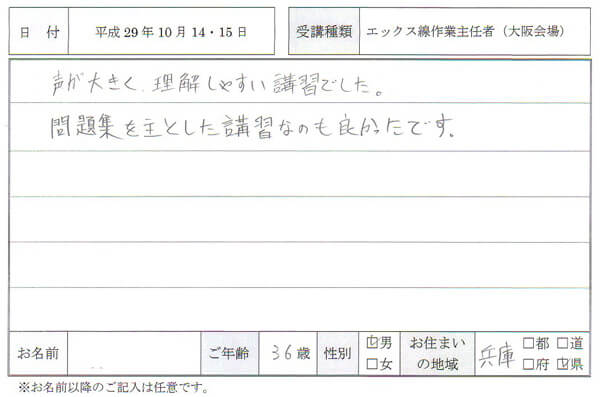 日 付 平成29年10月14・15日 受講種類 エックス線作業主任者（大阪会場）
声が大きく、理解しやすい講習でした。
問題集を主とした講習なのも良かったです。
お名前 ご年齢 36歳 性別 ☑男 □女 お住まいの地域 兵庫 □都 □道 □府 ☑県
※お名前以降のご記入は任意です。